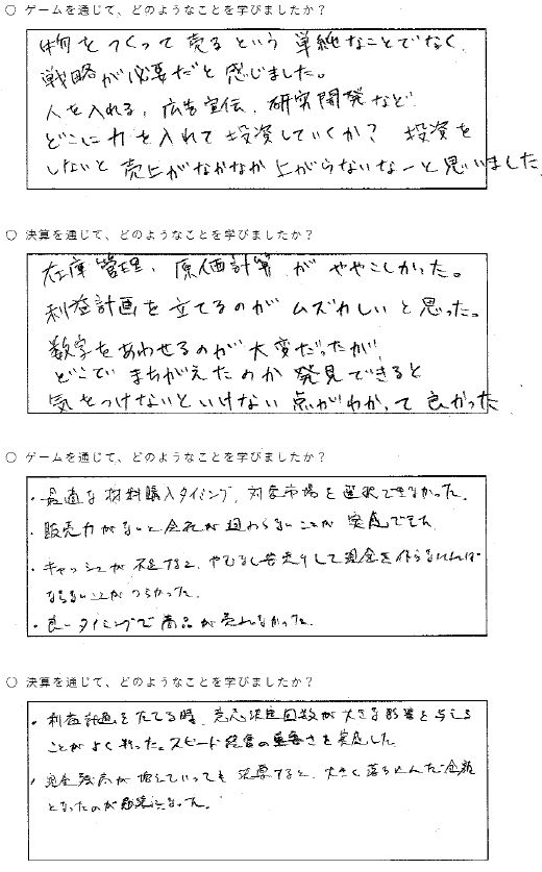 ○ ゲームを通じて、どのようなことを学びましたか？
物をつくって売るという単純なことでなく
戦略が必要だと感じました。
人を入れる，広告宣伝，研究開発など
どこに力を入れて投資していくか？ 投資を
しないと売上がなかなか上がらないなーと思いました
○ 決算を通じて、どのようなことを学びましたか？
在庫管理，原価計算がややこしかった。
利益計画を立てるのがムズかしいと思った。
数字をあわせるのが大変だったが，
どこでまちがえたのか発見できると
気をつけないといけない点がわかって良かった
○ ゲームを通じて、どのようなことを学びましたか？
・最適な材料購入タイミング，対象市場を選択できなかった。
・販売力がないと会社が回わらないことが実感できた
・キャッシュが不足すると，やむなし安売りして現金を作らなければ
ならないことがつらかった。
・良いタイミングで商品が売れなかった．
○ 決算を通じて、どのようなことを学びましたか？
・利益計画をたてる時，意思決定回数が大きな影響を与える
ことがよく判った。スピード経営の重要さを実感した
・現金残高が増えていっても決算すると，大きく落ち込んだ金額
となったのが